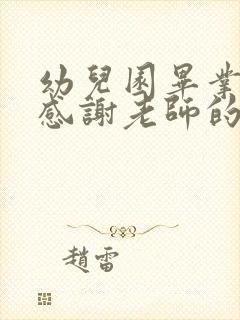 幼兒園畢業
感謝老師的
趙雷